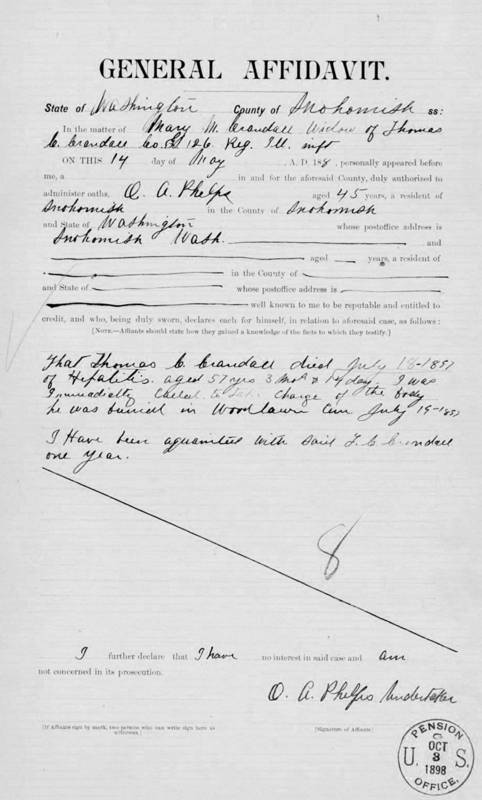 GENERAL AFFIDAVIT.
State of Washington County of Snohomish ss:
In the matter of Mary M. Crandall Widow of Thomas
C. Crandall Co. 126 Reg. Ill. inft
ON THIS 14 day of May , A. D. 188 , personally appeared before
me, a in and for the aforesaid County, duly authorized to
administer oaths, O. A. Phelps aged 45 years, a resident of
Snohomish in the County of Snohomish
and State of Washington whose postoffice address is
Snohomish Wash. and
aged years, a resident of
in the County of
and State of whose postoffice address is
well known to me to be reputable and entitled to
credit, and who, being duly sworn, declares each for himself, in relation to aforesaid case, as follows:
[NOTE.—Affiants should state how they gained a knowledge of the facts to which they testify.]
That Thomas C. Crandall died July 18-
of Hepatitis. aged 57 yrs 3 mos & 14 day. I was
Immediatly Called to take Charge of the body
he was buried in Woodlawn Cem July 19-
I Have been aquainted with said T. C. Crandall
one year.
8
I further declare that I have no interest in said case and am
not concerned in its prosecution.
O. A. Phelps Undertaker
[If Affiants sign by mark, two persons who can write sign here as witnesses.] [Signature of Affiants]
PENSION
OCT
3
U. S.
1898
OFFICE.